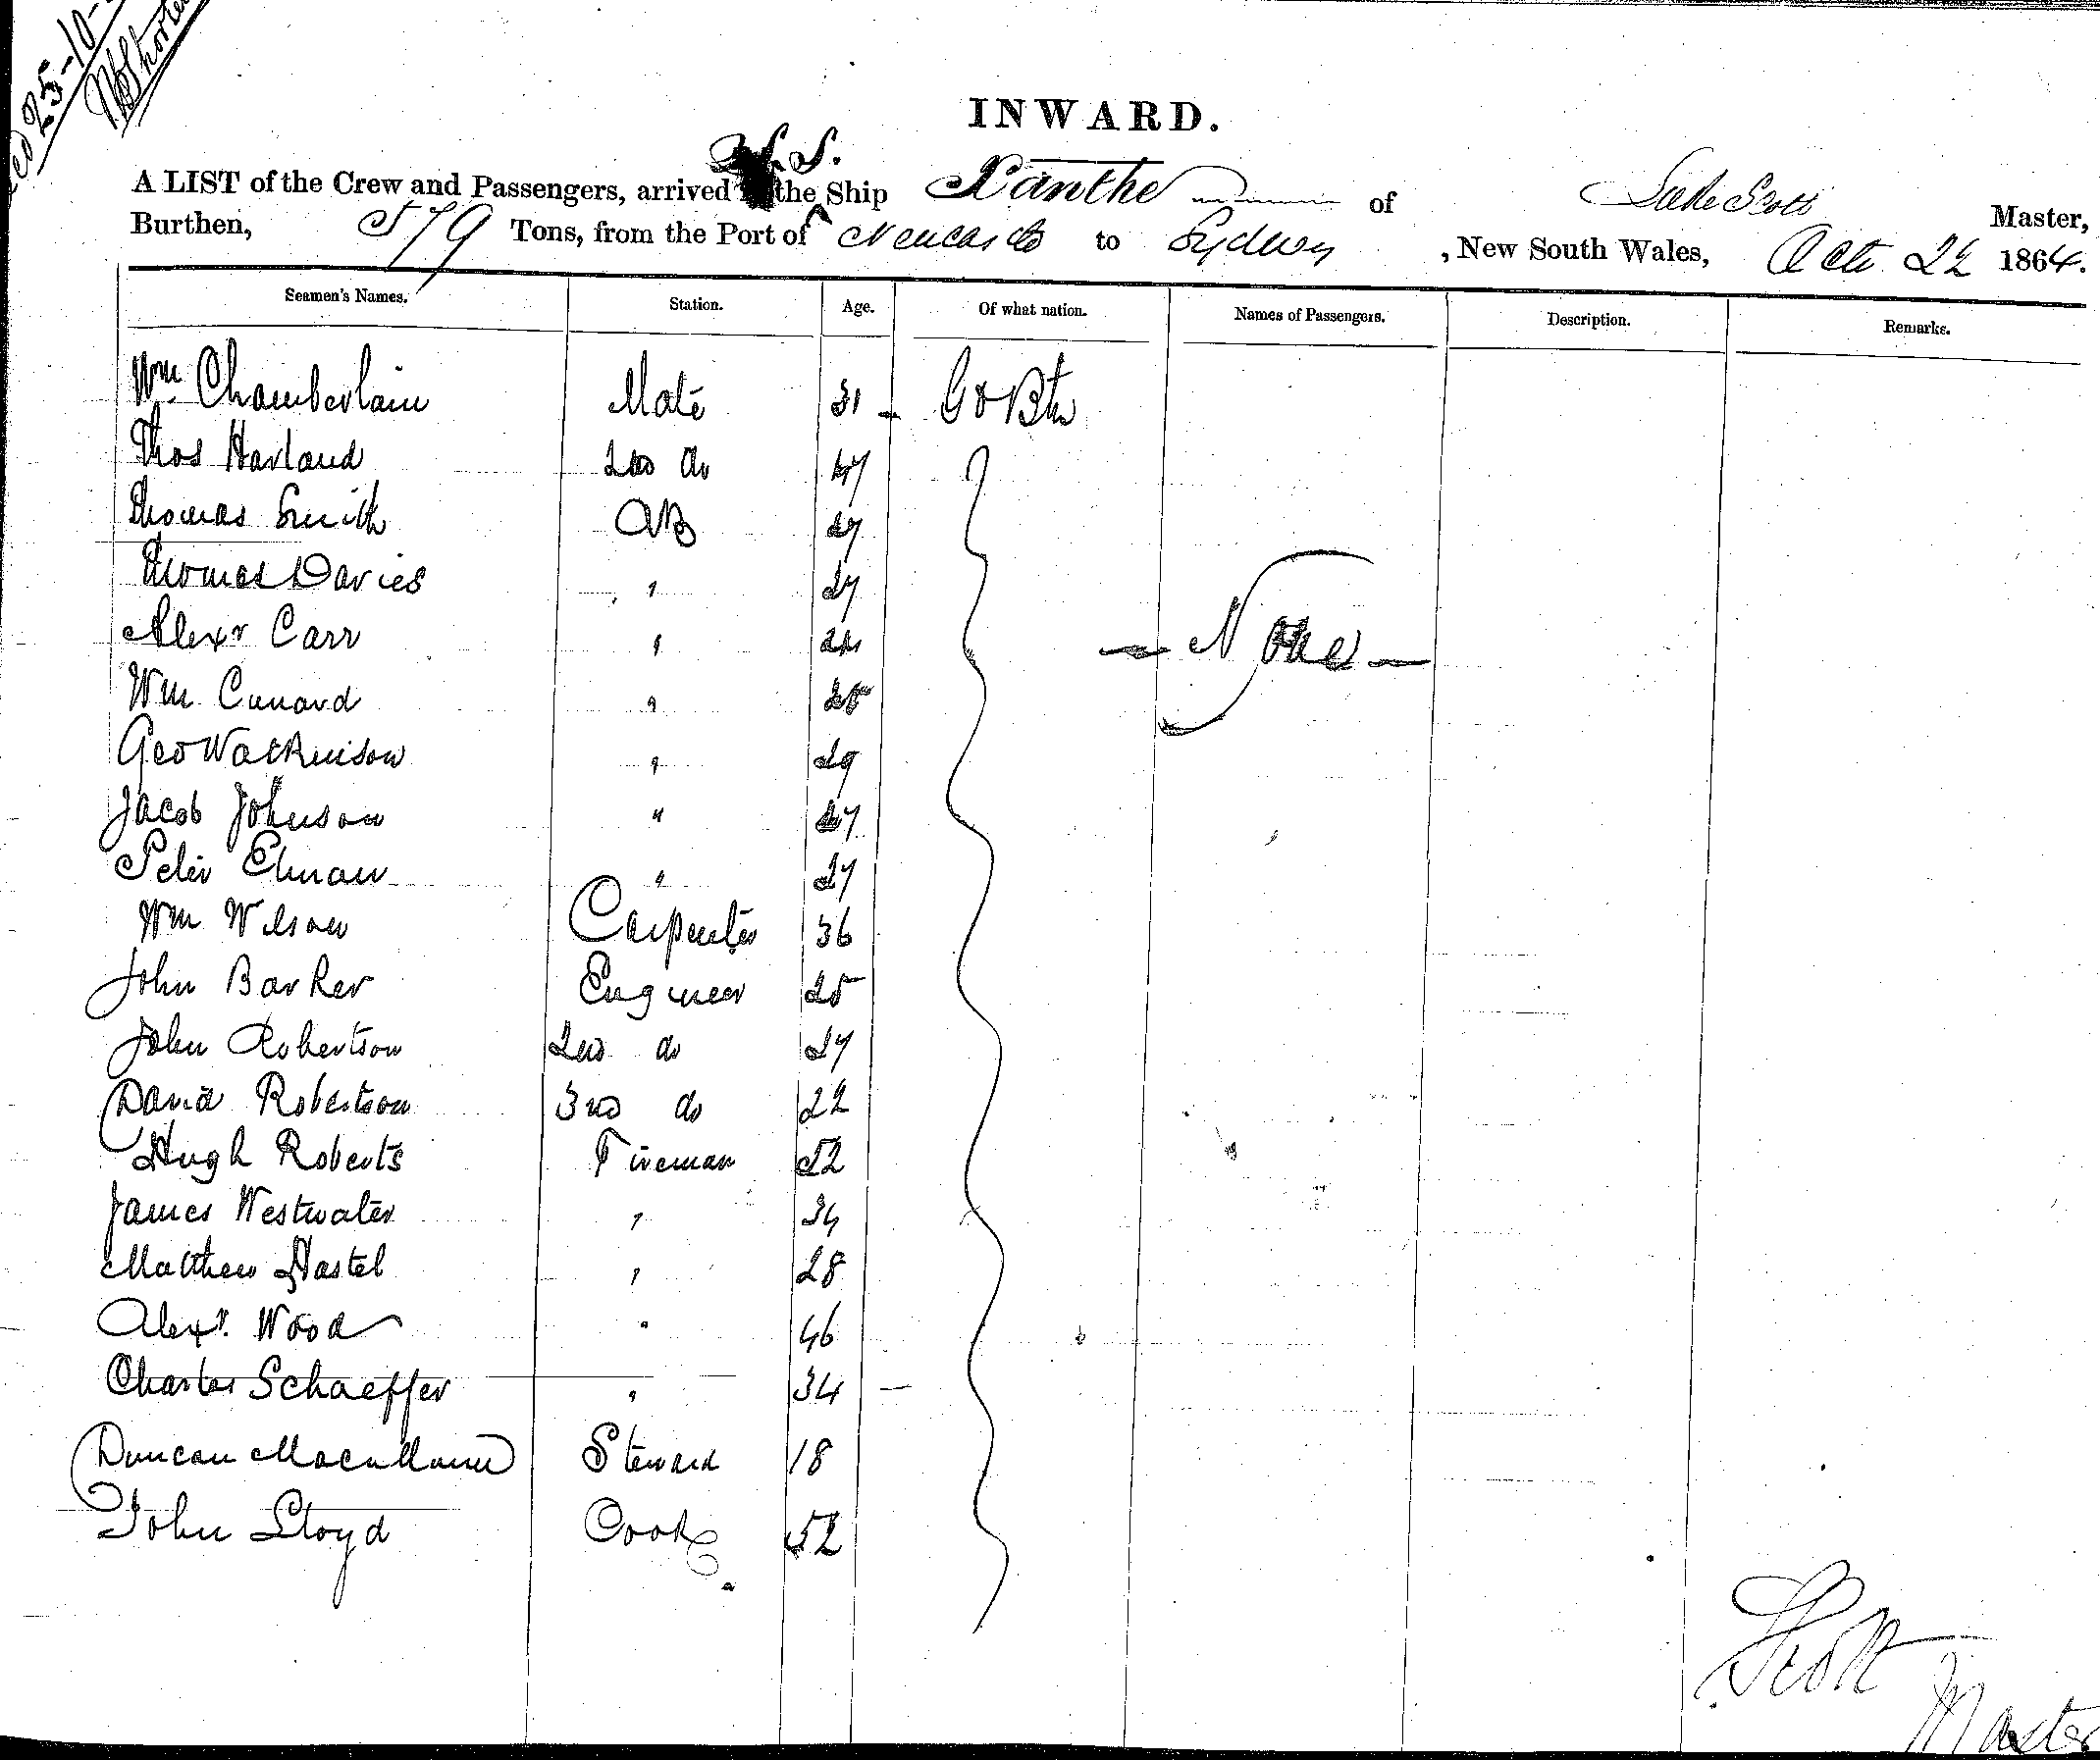 25-10-
INWARD.
S.S.
A LIST of the Crew and Passengers, arrived the Ship Xanthe of Luke Scott Master,
Burthen, 579 Tons, from the Port of Newcastle to Sydney, New South Wales, Octr 22 1864.
Seamen's Names. Station. Age. Of what nation. Names of Passengers. Description. Remarks.
Wm Chamberlain Mate 31 Gt Btn
Thos Harland 2nd do 47
Thomas Smith AB 27
Thomas Davies " 27
Alexr Carr "
Wm Cunard " 25
None
Geo Watkinson " 29
Jacob Johnson " 27
Peter Elman " 27
Wm Wilson Carpenter 36
John Barker Engineer 25
John Robertson 2nd do 27
David Robertson 3rd do 22
Hugh Roberts Fireman 52
James Westwater " 34
Matthew Hastel " 28
Alexr. Wood " 46
Charles Schaeffer " 34
Duncan Steward 18
John Lloyd Cook 52
Scott
Master